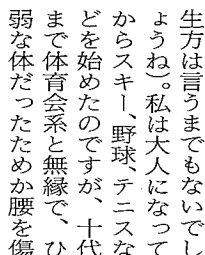 生方は言うまでもないでし
ょうね）。私は大人になって
からスキー、野球、テニスな
どを始めたのですが、十代
まで体育会系と無縁で、ひ
弱な体だったためか腰を傷